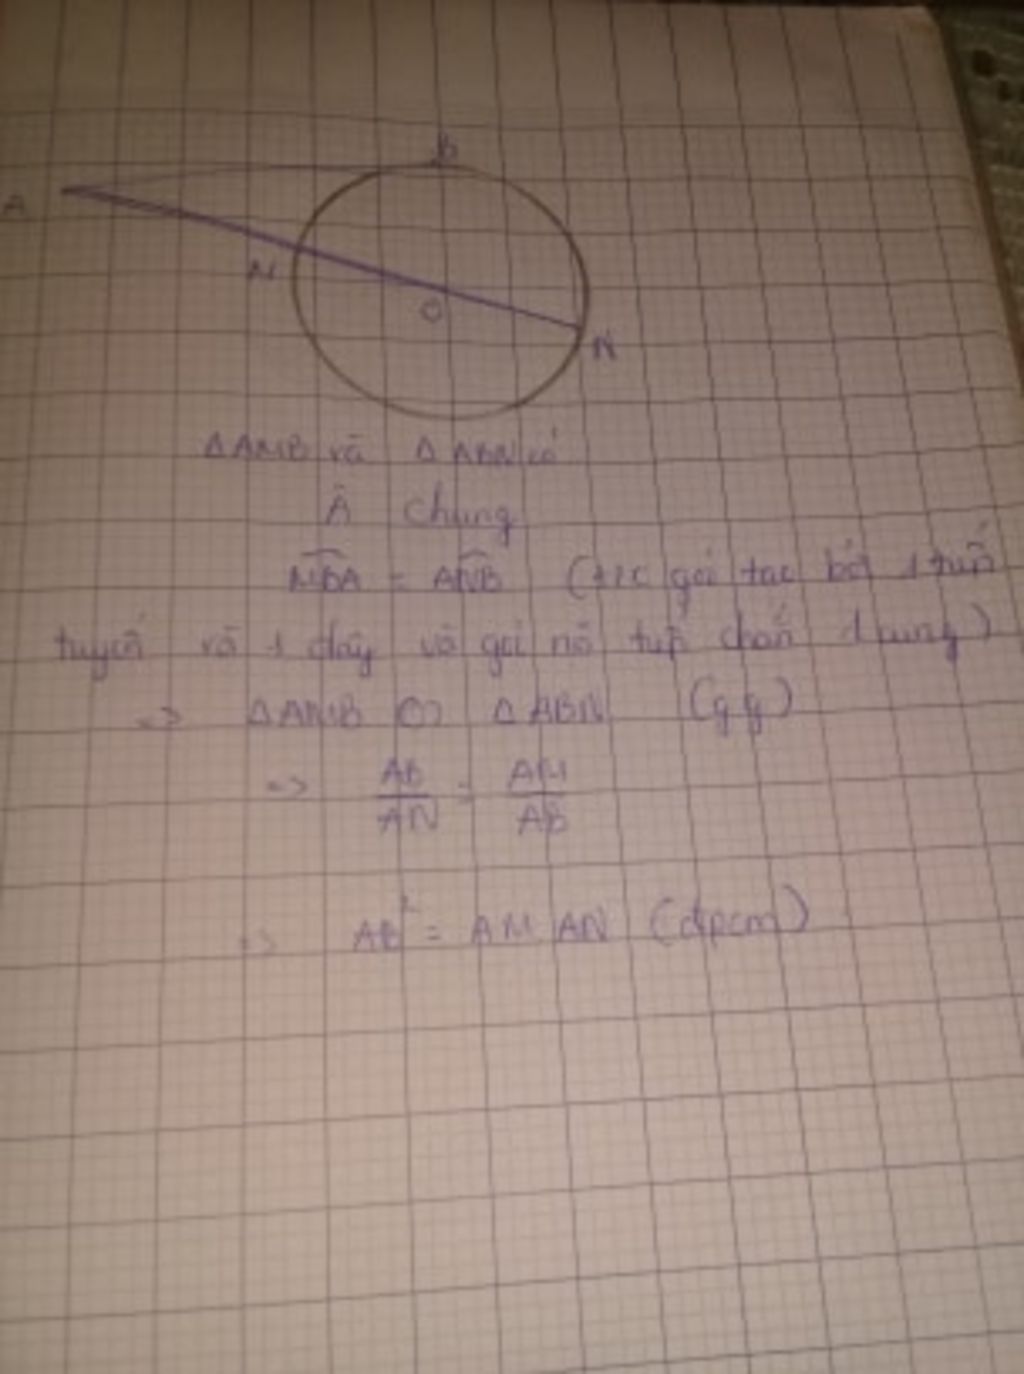 B
A
M
O
N
ΔAMB và ΔABN có
Â chung
MBA = ANB (t/c góc tạo bởi 1 tiếp
tuyến và 1 dây và góc nội tiếp chắn 1 cung)
=> ΔAMB ∽ ΔABN (g.g)
=> AB/AN = AM/AB
=> AB² = AM.AN (đpcm)